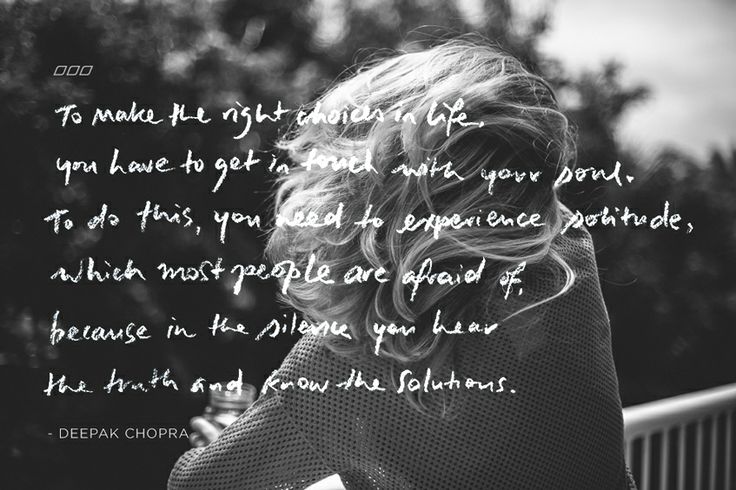 To make the right choices in life,
you have to get in touch with your soul.
To do this, you need to experience solitude,
which most people are afraid of,
because in the silence you hear
the truth and know the solutions.
- DEEPAK CHOPRA